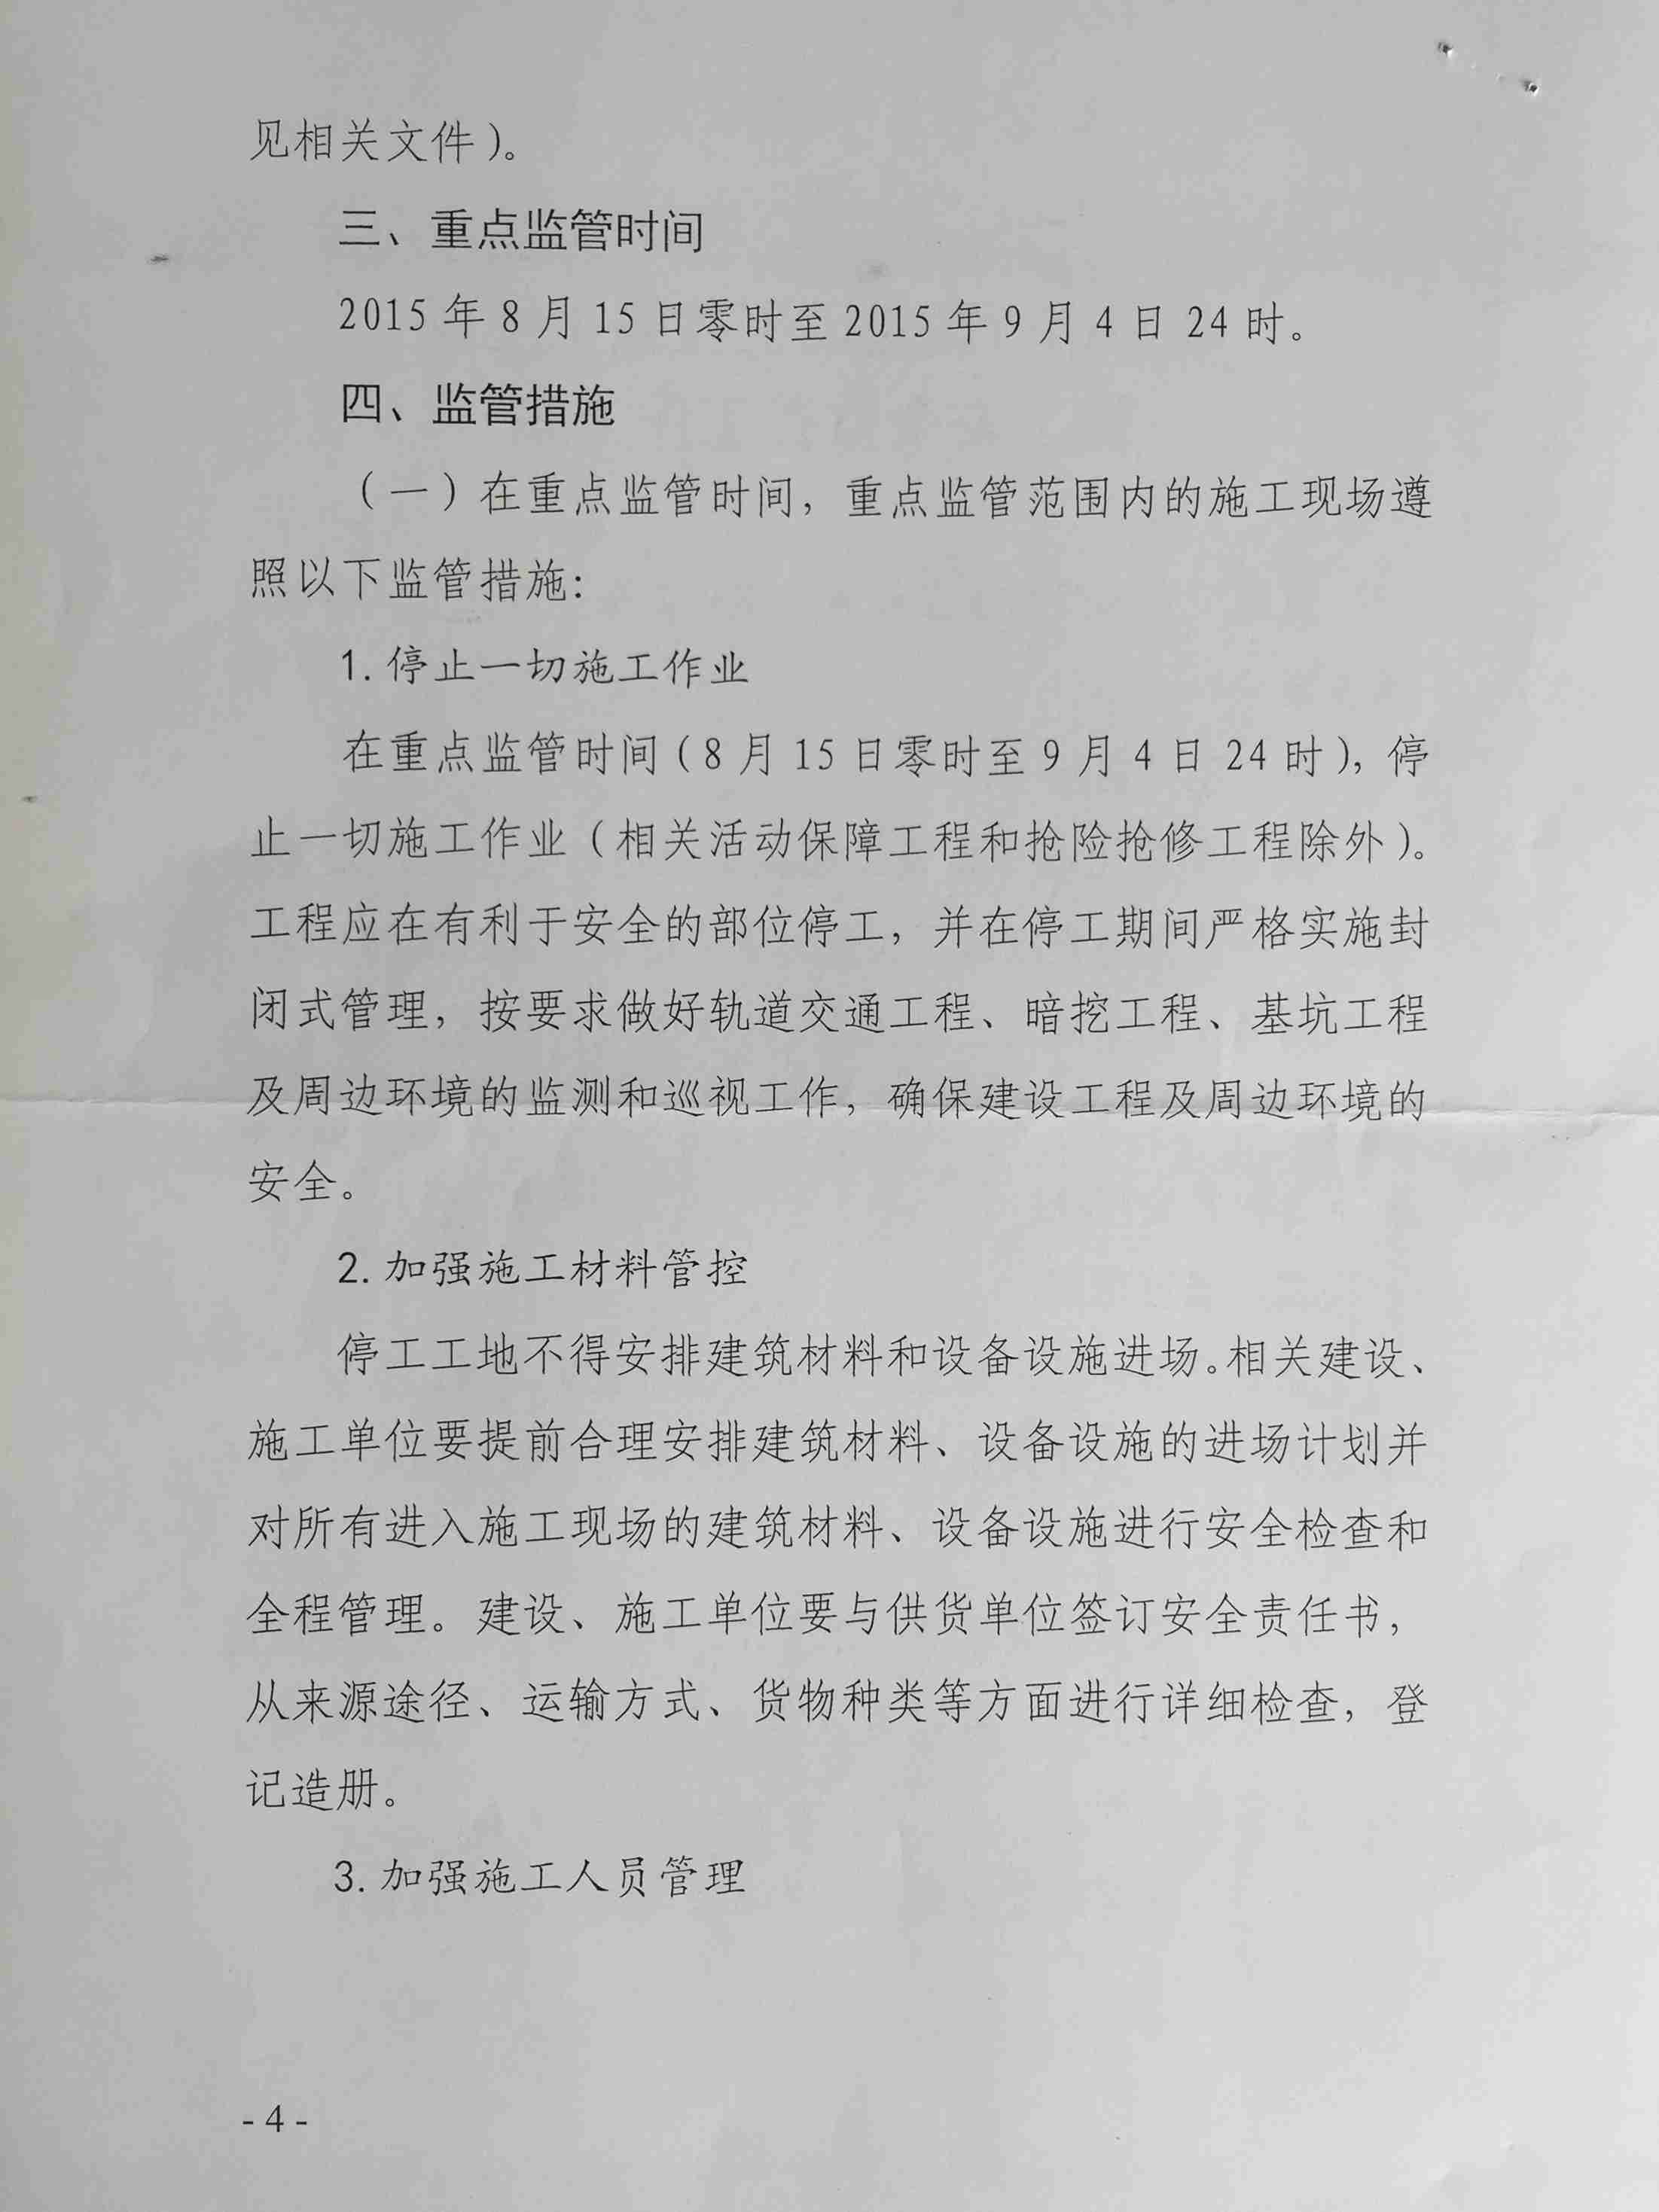 见相关文件）。
三、重点监管时间
2015年8月15日零时至2015年9月4日24时。
四、监管措施
（一）在重点监管时间，重点监管范围内的施工现场遵
照以下监管措施：
1.停止一切施工作业
在重点监管时间（8月15日零时至9月4日24时），停
止一切施工作业（相关活动保障工程和抢险抢修工程除外）。
工程应在有利于安全的部位停工，并在停工期间严格实施封
闭式管理，按要求做好轨道交通工程、暗挖工程、基坑工程
及周边环境的监测和巡视工作，确保建设工程及周边环境的
安全。
2.加强施工材料管控
停工工地不得安排建筑材料和设备设施进场。相关建设、
施工单位要提前合理安排建筑材料、设备设施的进场计划并
对所有进入施工现场的建筑材料、设备设施进行安全检查和
全程管理。建设、施工单位要与供货单位签订安全责任书，
从来源途径、运输方式、货物种类等方面进行详细检查，登
记造册。
3.加强施工人员管理
-4-